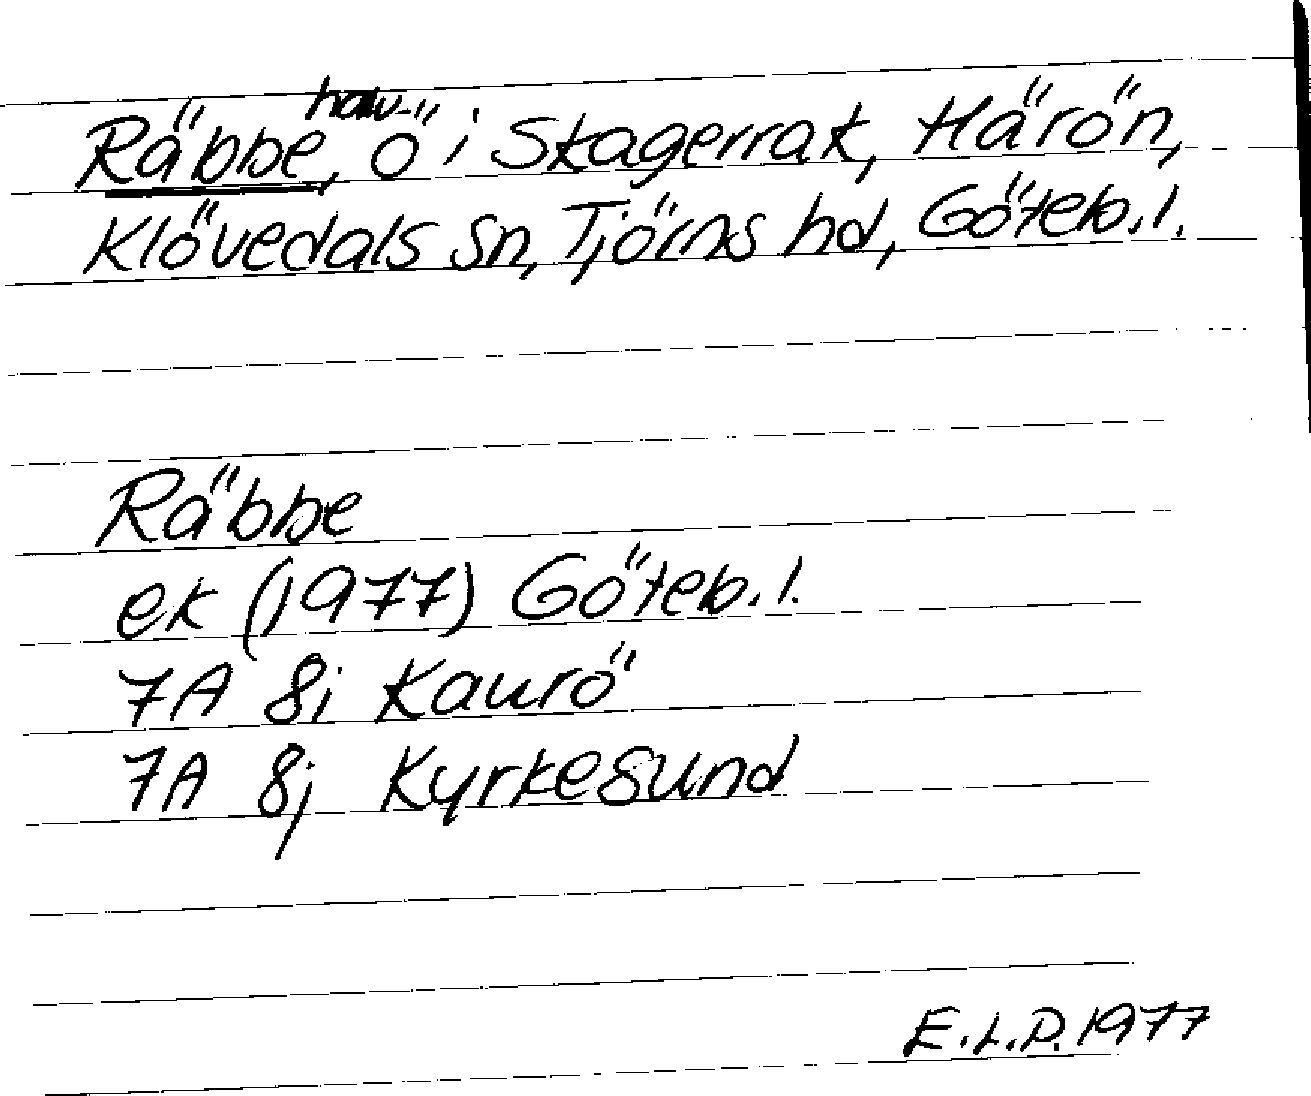 Räbbe, halv-ö i Skagerrak, Härön,
Klövedals sn, Tjörns hd, Göteb.l.
Räbbe
ek (1977) Göteb.l.
7A 8i Kaurö
7A 8j Kyrkesund
E.L.P. 1977